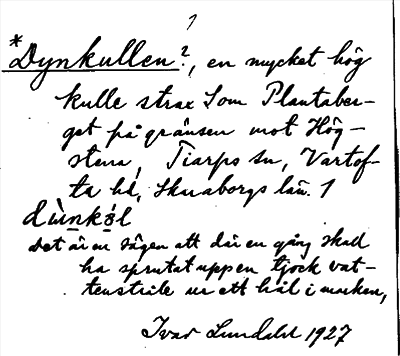 1
*Dynkullen?, en mycket hög
kulle strax Plantaber-
get på gränsen mot Hög-
stena, Tiarps sn, Vartof-
ta hd, Skaraborgs län. 1
dùnkəl
det är en sägen att där en gång skall
ha sprutat upp en tjock vat-
tenstråle ur ett hål i marken,
Ivar Lundahl 1927